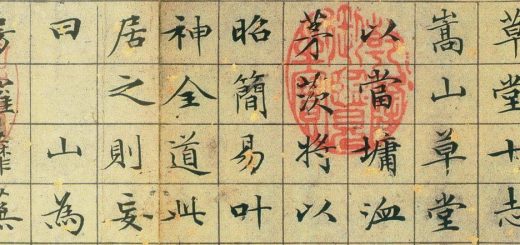 草堂十志
嵩山草堂
以當墉洫
茅茨將以
昭簡易叶
神全道此
居之則妄
曰山為
房羅蘼蕪